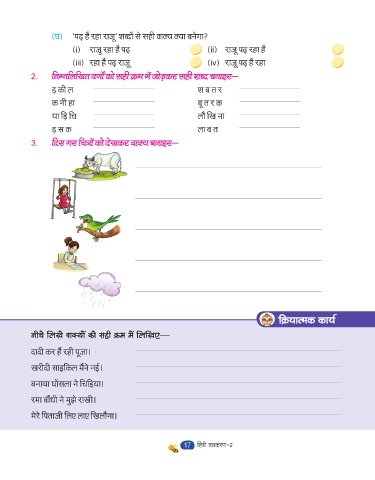 (घ) 'पढ़ है रहा राजू' शब्दों से सही वाक्य क्या बनेगा?
(i) राजू रहा है पढ़ (ii) राजू पढ़ रहा है
(iii) रहा है पढ़ राजू (iv) राजू पढ़ है रहा
2. निम्नलिखित वर्णों को सही क्रम में जोड़कर सही शब्द बनाइए—
इ की ल श ब त र
क नी हा बू त र क
या ड़ि चि लौ खि ना
ड़ स क ला ब त
3. दिए गए चित्रों को देखकर वाक्य बनाइए—
क्रियात्मक कार्य
नीचे लिखे वाक्यों को सही क्रम में लिखिए—
दादी कर हैं रही पूजा।
खरीदी साइकिल मैंने नई।
बनाया घोंसला ने चिड़िया।
रमा बाँधी ने मुझे राखी।
मेरे पिताजी लिए लाए खिलौना।
17 हिंदी व्याकरण-2